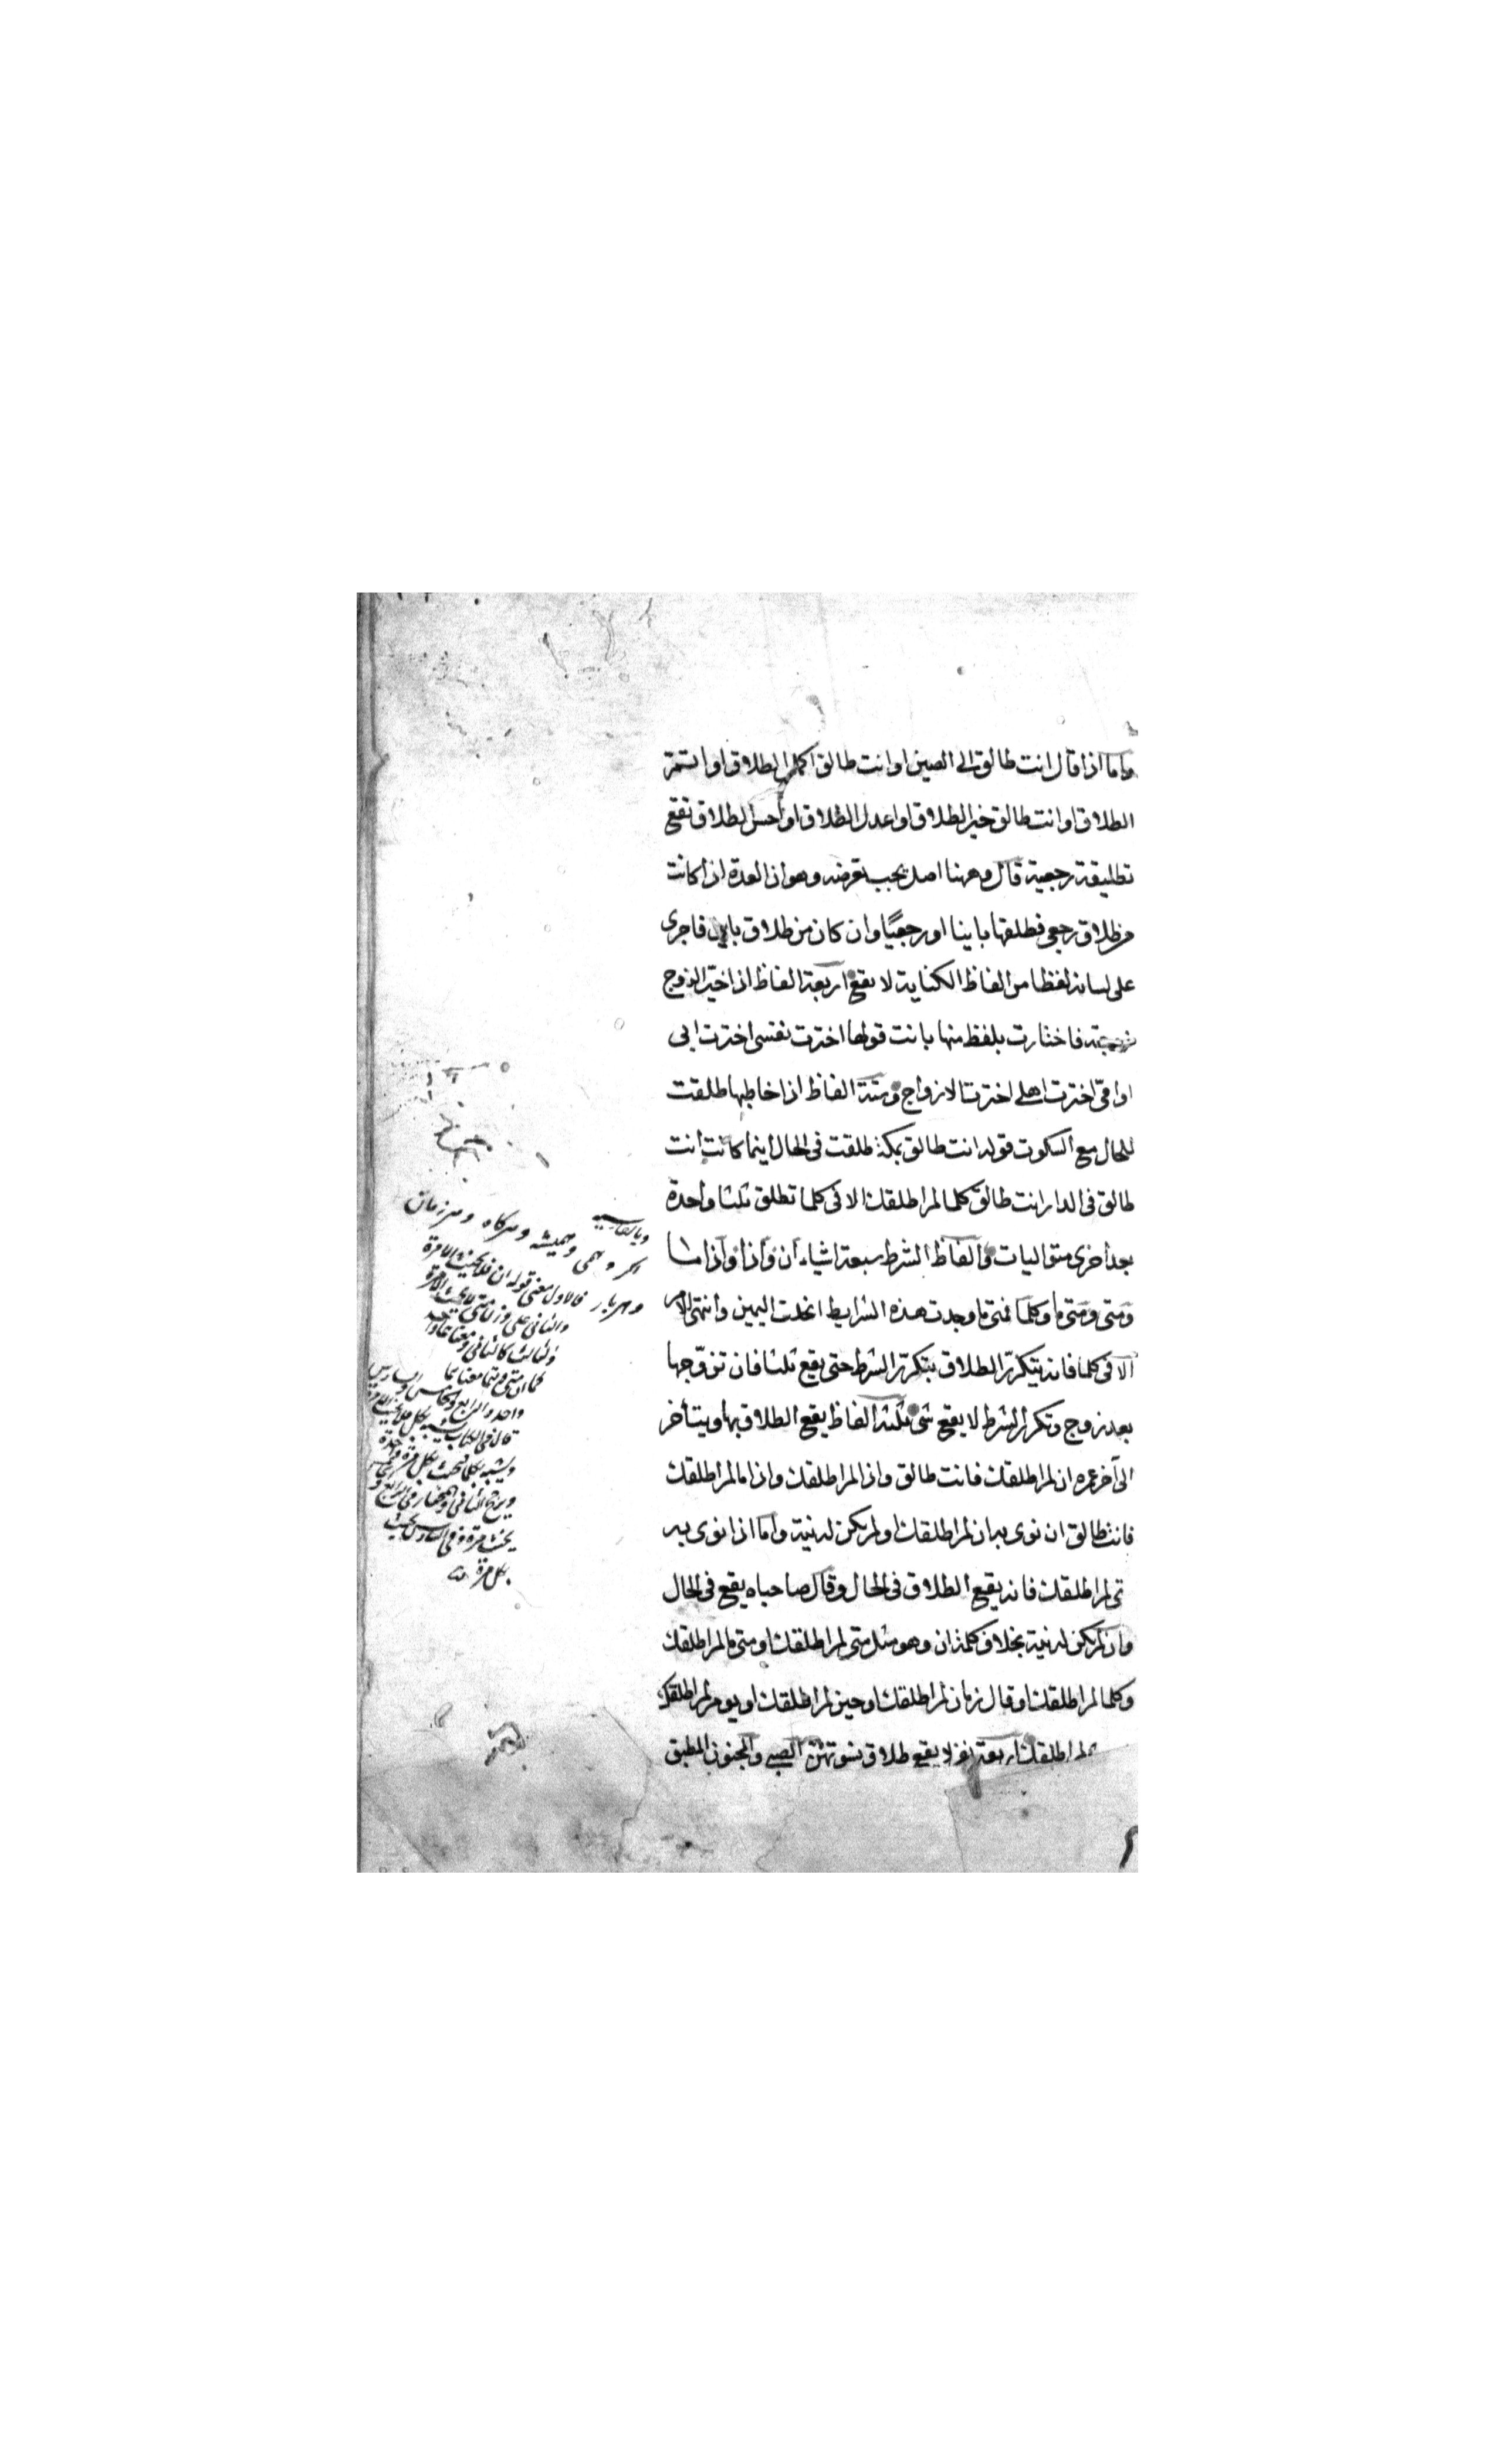 واما اذا قال انت طالق الى الصين او انت طالق اكمل الطلاق او اتم
الطلاق او انت طالق خير الطلاق او اعدل الطلاق او احسن الطلاق تقع
تطليقة رجعية قال وههنا اصل يجب معرفته وهو ان العدة اذا كانت
من طلاق رجعى فطلقها باينا او رجعيا وان كان من طلاق باين فاجرى
على لسانه لفظا من الفاظ الكناية لا يقع اربعة الفاظ اذا خير الزوج
زوجته فاختارت بلفظ منها بانت قولها اخترت نفسى اخترت ابى
او امى اخترت اهلى اخترت الازواج وستة الفاظ اذا خاطبها طلقت
للحال مع السكوت قوله انت طالق بمكة طلقت فى الحال اينما كانت انت
طالق فى الدار انت طالق كلما لم اطلقك الا فى كلما تطلق ثلثا واحدة
بعد اخرى متواليات والفاظ الشرط سبعة اشياء ان واذا واذا ما
ومتى ومتى ما وكلما فمتى ما وجدت هذه الشرايط انحلت اليمين وانتهى الامر
الا فى كلما فانه يتكرر الطلاق بتكرر الشرط حتى يقع ثلثا فان تزوجها
بعد زوج وتكرر الشرط لا يقع شى ثلثة الفاظ يقع الطلاق بها ويتأخر
الى آخر عمره ان لم اطلقك فانت طالق واذا لم اطلقك واذا ما لم اطلقك
فانت طالق ان نوى به ان لم اطلقك او لم يكن له نية واما اذا نوى به
متى لم اطلقك فانه يقع الطلاق فى الحال وقال صاحباه يقع فى الحال
وان لم يكن له نية بخلاف كلمة ان وهو مثل متى لم اطلقك او متى ما لم اطلقك
وكلما لم اطلقك او قال زمان لم اطلقك او حين لم اطلقك او يوم لم اطلقك
لم اطلقك اربعة نفر لا يقع طلاق نسوتهم الصبى والمجنون المطبق
وبالفارسية
اكر وهمى وهميشه وهركاه وهرزمان
وهربار فالاول معنى قوله ان فلا يحنث الا مرة
والثانى على وزن متى لا يحنث الا مرة
والثالث كالثانى ومعناهما واحد
كما ان متى ومتى ما معناهما
واحد والرابع والخامس والسادس
قال فى الكتاب
يحنث مرة وفى السادس يحنث
بكل مرة